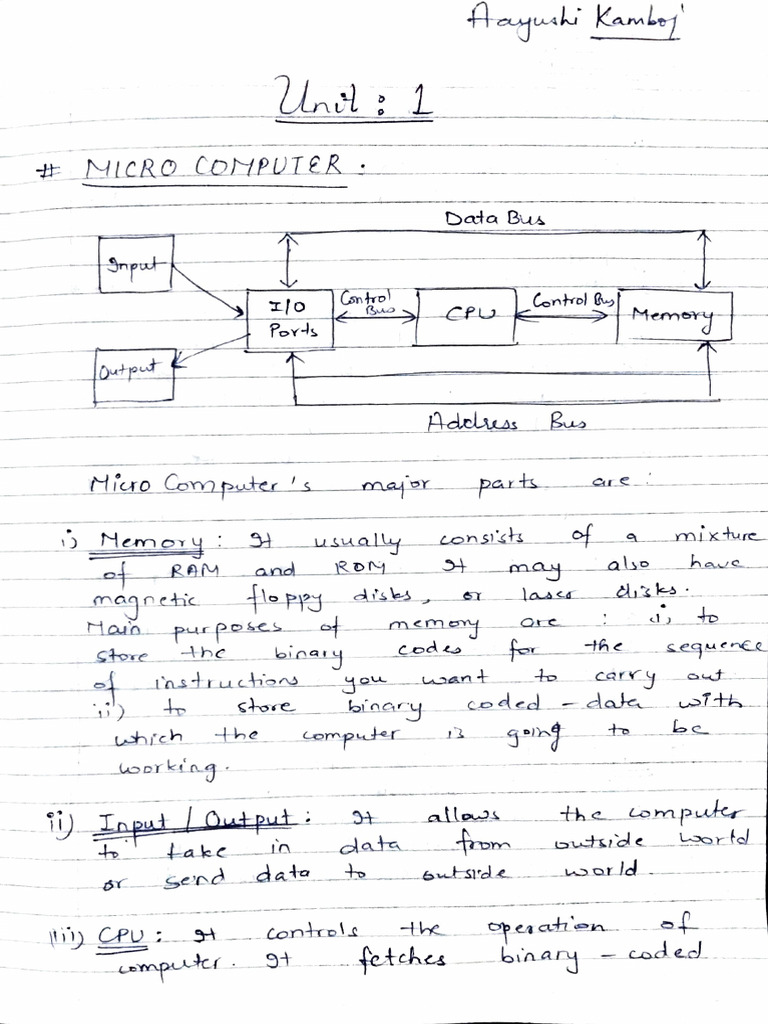 Aayushi Kamboj
Unit : 1
# MICRO COMPUTER .
Data Bus
Input
I/O
Ports
Control
Bus
CPU
Control Bus
Memory
Output
Address Bus
Micro Computer's major parts are :
i) Memory : It usually consists of a mixture
of RAM and ROM It may also have
magnetic floppy disks, or laser disks.
Main purposes of memory are : i) to
store the binary codes for the sequence
of instructions you want to carry out
ii) to store binary coded - data with
which the computer is going to be
working.
ii) Input / Output : It allows the computer
to take in data from outside world
or send data to outside world.
iii) CPU : It controls the operation of
computer. It fetches binary - coded